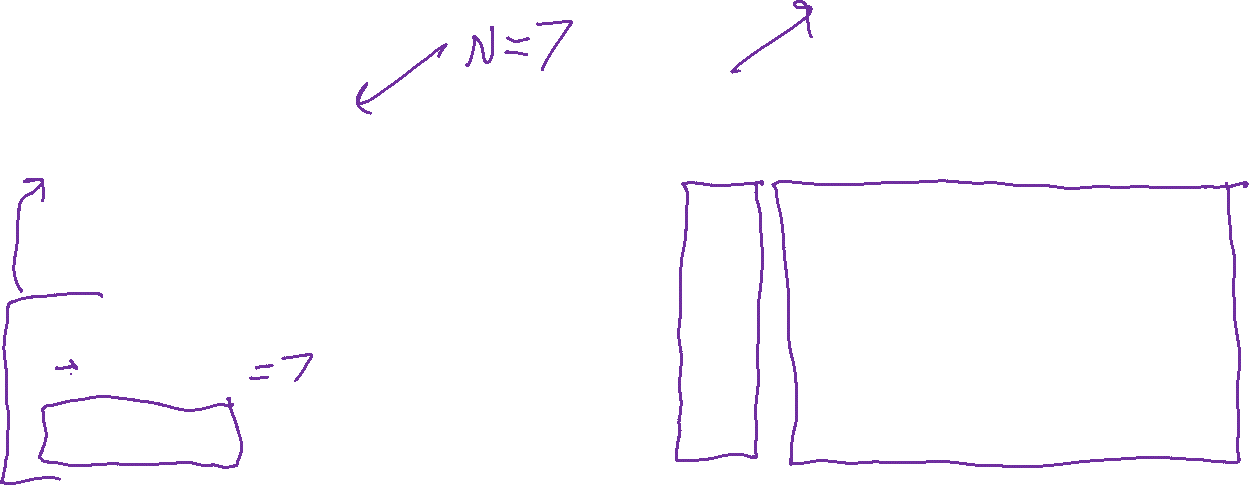 N=7
=7